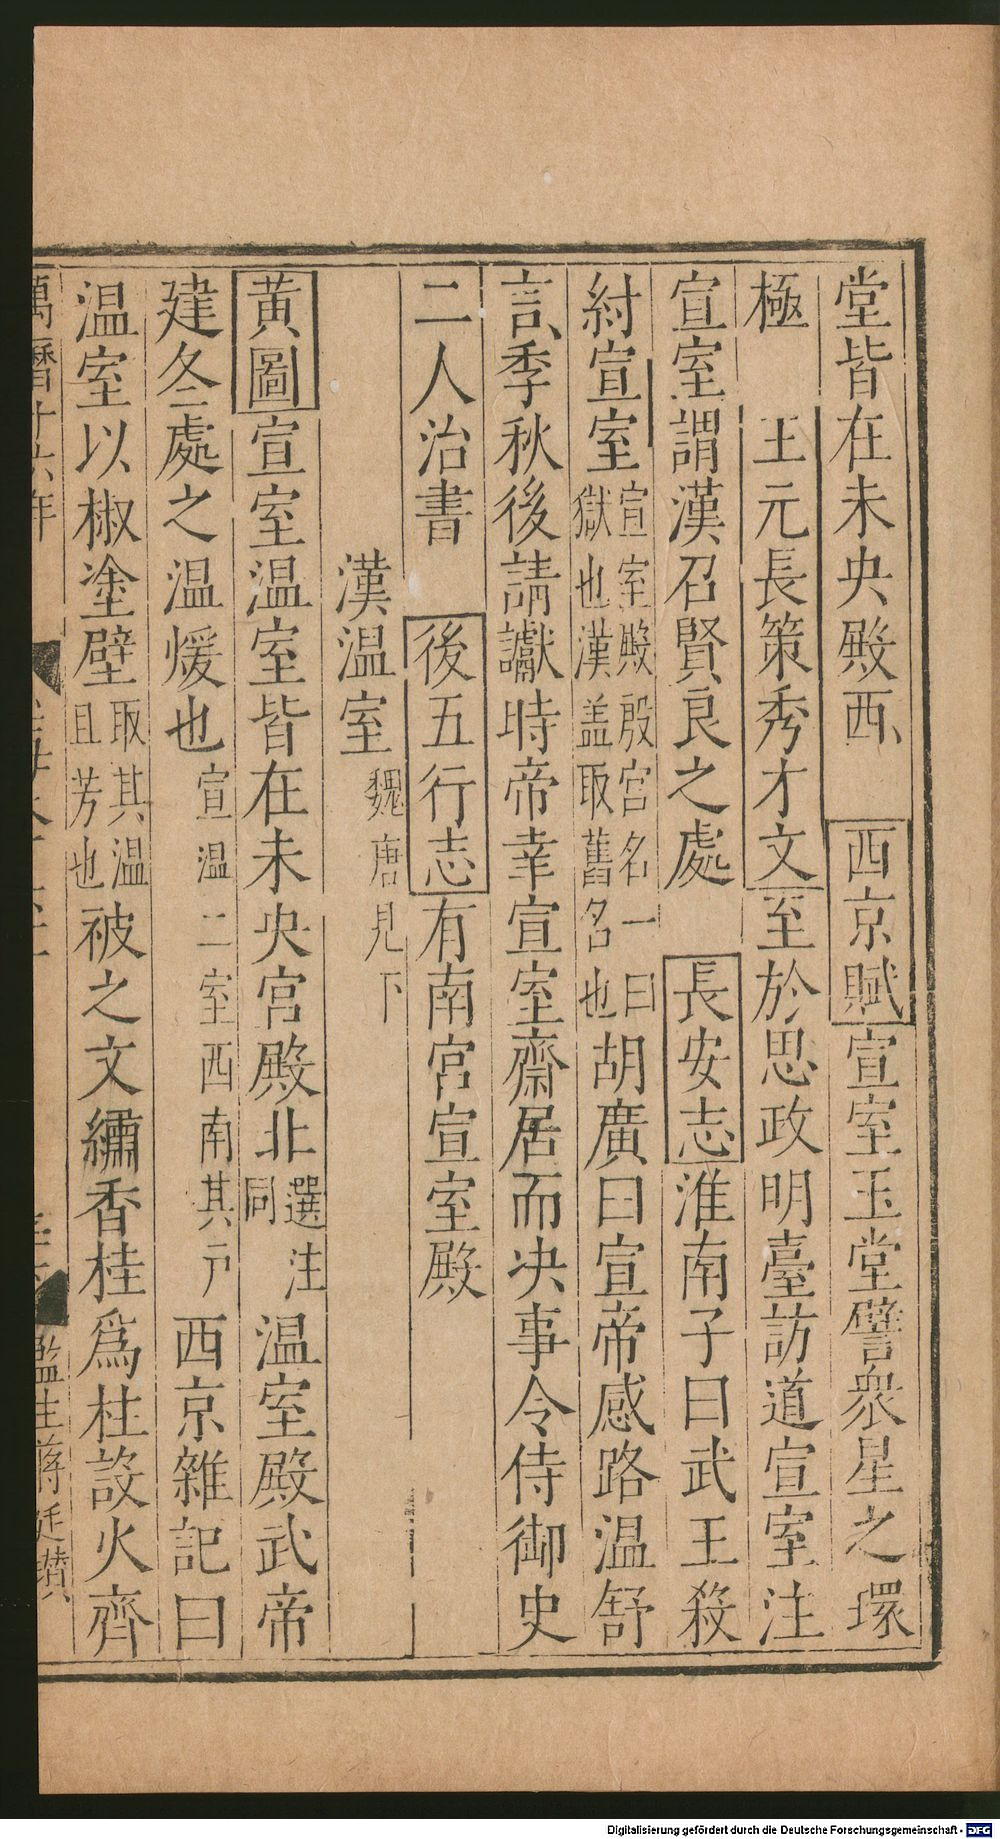 堂皆在未央殿西　西京賦宣室玉堂譬衆星之環
極　王元長策秀才文至於思政明臺訪道宣室注
宣室謂漢召賢良之處　長安志淮南子曰武王殺
紂宣室宣室殿殷宮名一曰獄也漢盖取舊名也胡廣曰宣帝感路温舒
言季秋後請讞時帝幸宣室齋居而决事令侍御史
二人治書　後五行志有南宮宣室殿
漢温室魏唐見下
黄圖宣室温室皆在未央宮殿北選注同温室殿武帝
建冬處之温煖也宣温二室西南其戶西京雜記曰
温室以椒塗壁取其温且芳也被之文繡香桂爲柱設火齊
萬曆十六年
監生蔣廷
Digitalisierung gefördert durch die Deutsche Forschungsgemeinschaft - DFG